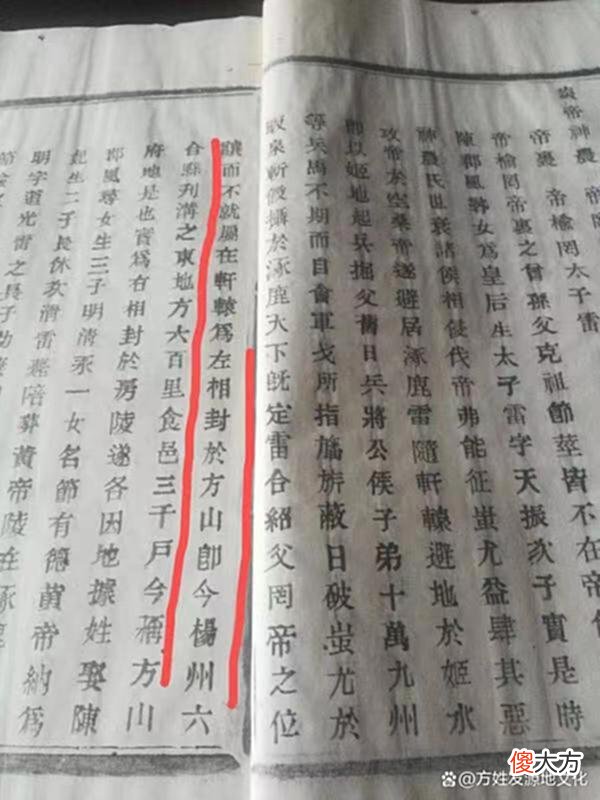 炎帝神農 帝榆罔太子雷
帝榆罔帝裏之曾孫父克祖節莖皆不在帝
陳郡風尋女為皇后生太子雷字天振次子實是時
神農氏世衰諸侯相侵伐帝弗能征蚩尤益肆其惡
攻帝於空桑帝遂避居涿鹿雷隨軒轅避地於姬水
即以姬地起兵掘父舊日兵將公侯子弟十萬九州
等兵馬不期而自會軍戈所指旌旂蔽日破蚩尤於
阪泉斬馘攝於涿鹿天下既定雷合紹父罔帝之位
讓而不就屬在軒轅為左相封於方山卽今楊州六
合縣刋溝之東地方六百里食邑三千戸今稱方山
府地是也實為右相封於房陵遂各因地據姓娶陳
郡風尋女生三子明清永一女名節有德黃帝納為
妃生二子長休次清雷薨陪葬黃帝陵在涿鹿
明字道光雷之長子
傻大方
@方姓发源地文化